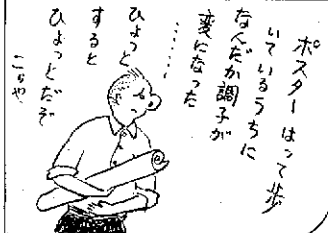 ポスターはって歩
いているうちに
なんだか調子が
変になった
……
ひょっと
すると
ひょっとだぞ
こりゃ